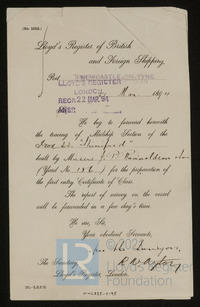 Lloyd's Register of British
and Foreign Shipping,
Port NEWCASTLE-ON-TYNE
LLOYD'S REGISTER
LONDON
RECD 22 MAR 94
189
We beg to forward herewith
the tracing of Midship Section of the
built by Messrs
(Yard No. 186) for the preparation of
the first entry Certificate of Class.
The report of survey on the vessel
will be forwarded in a few day's time.
We are, Sir,
Your obedient Servants,
for the Surveyors
The Secretary,
Lloyd's Register, London.